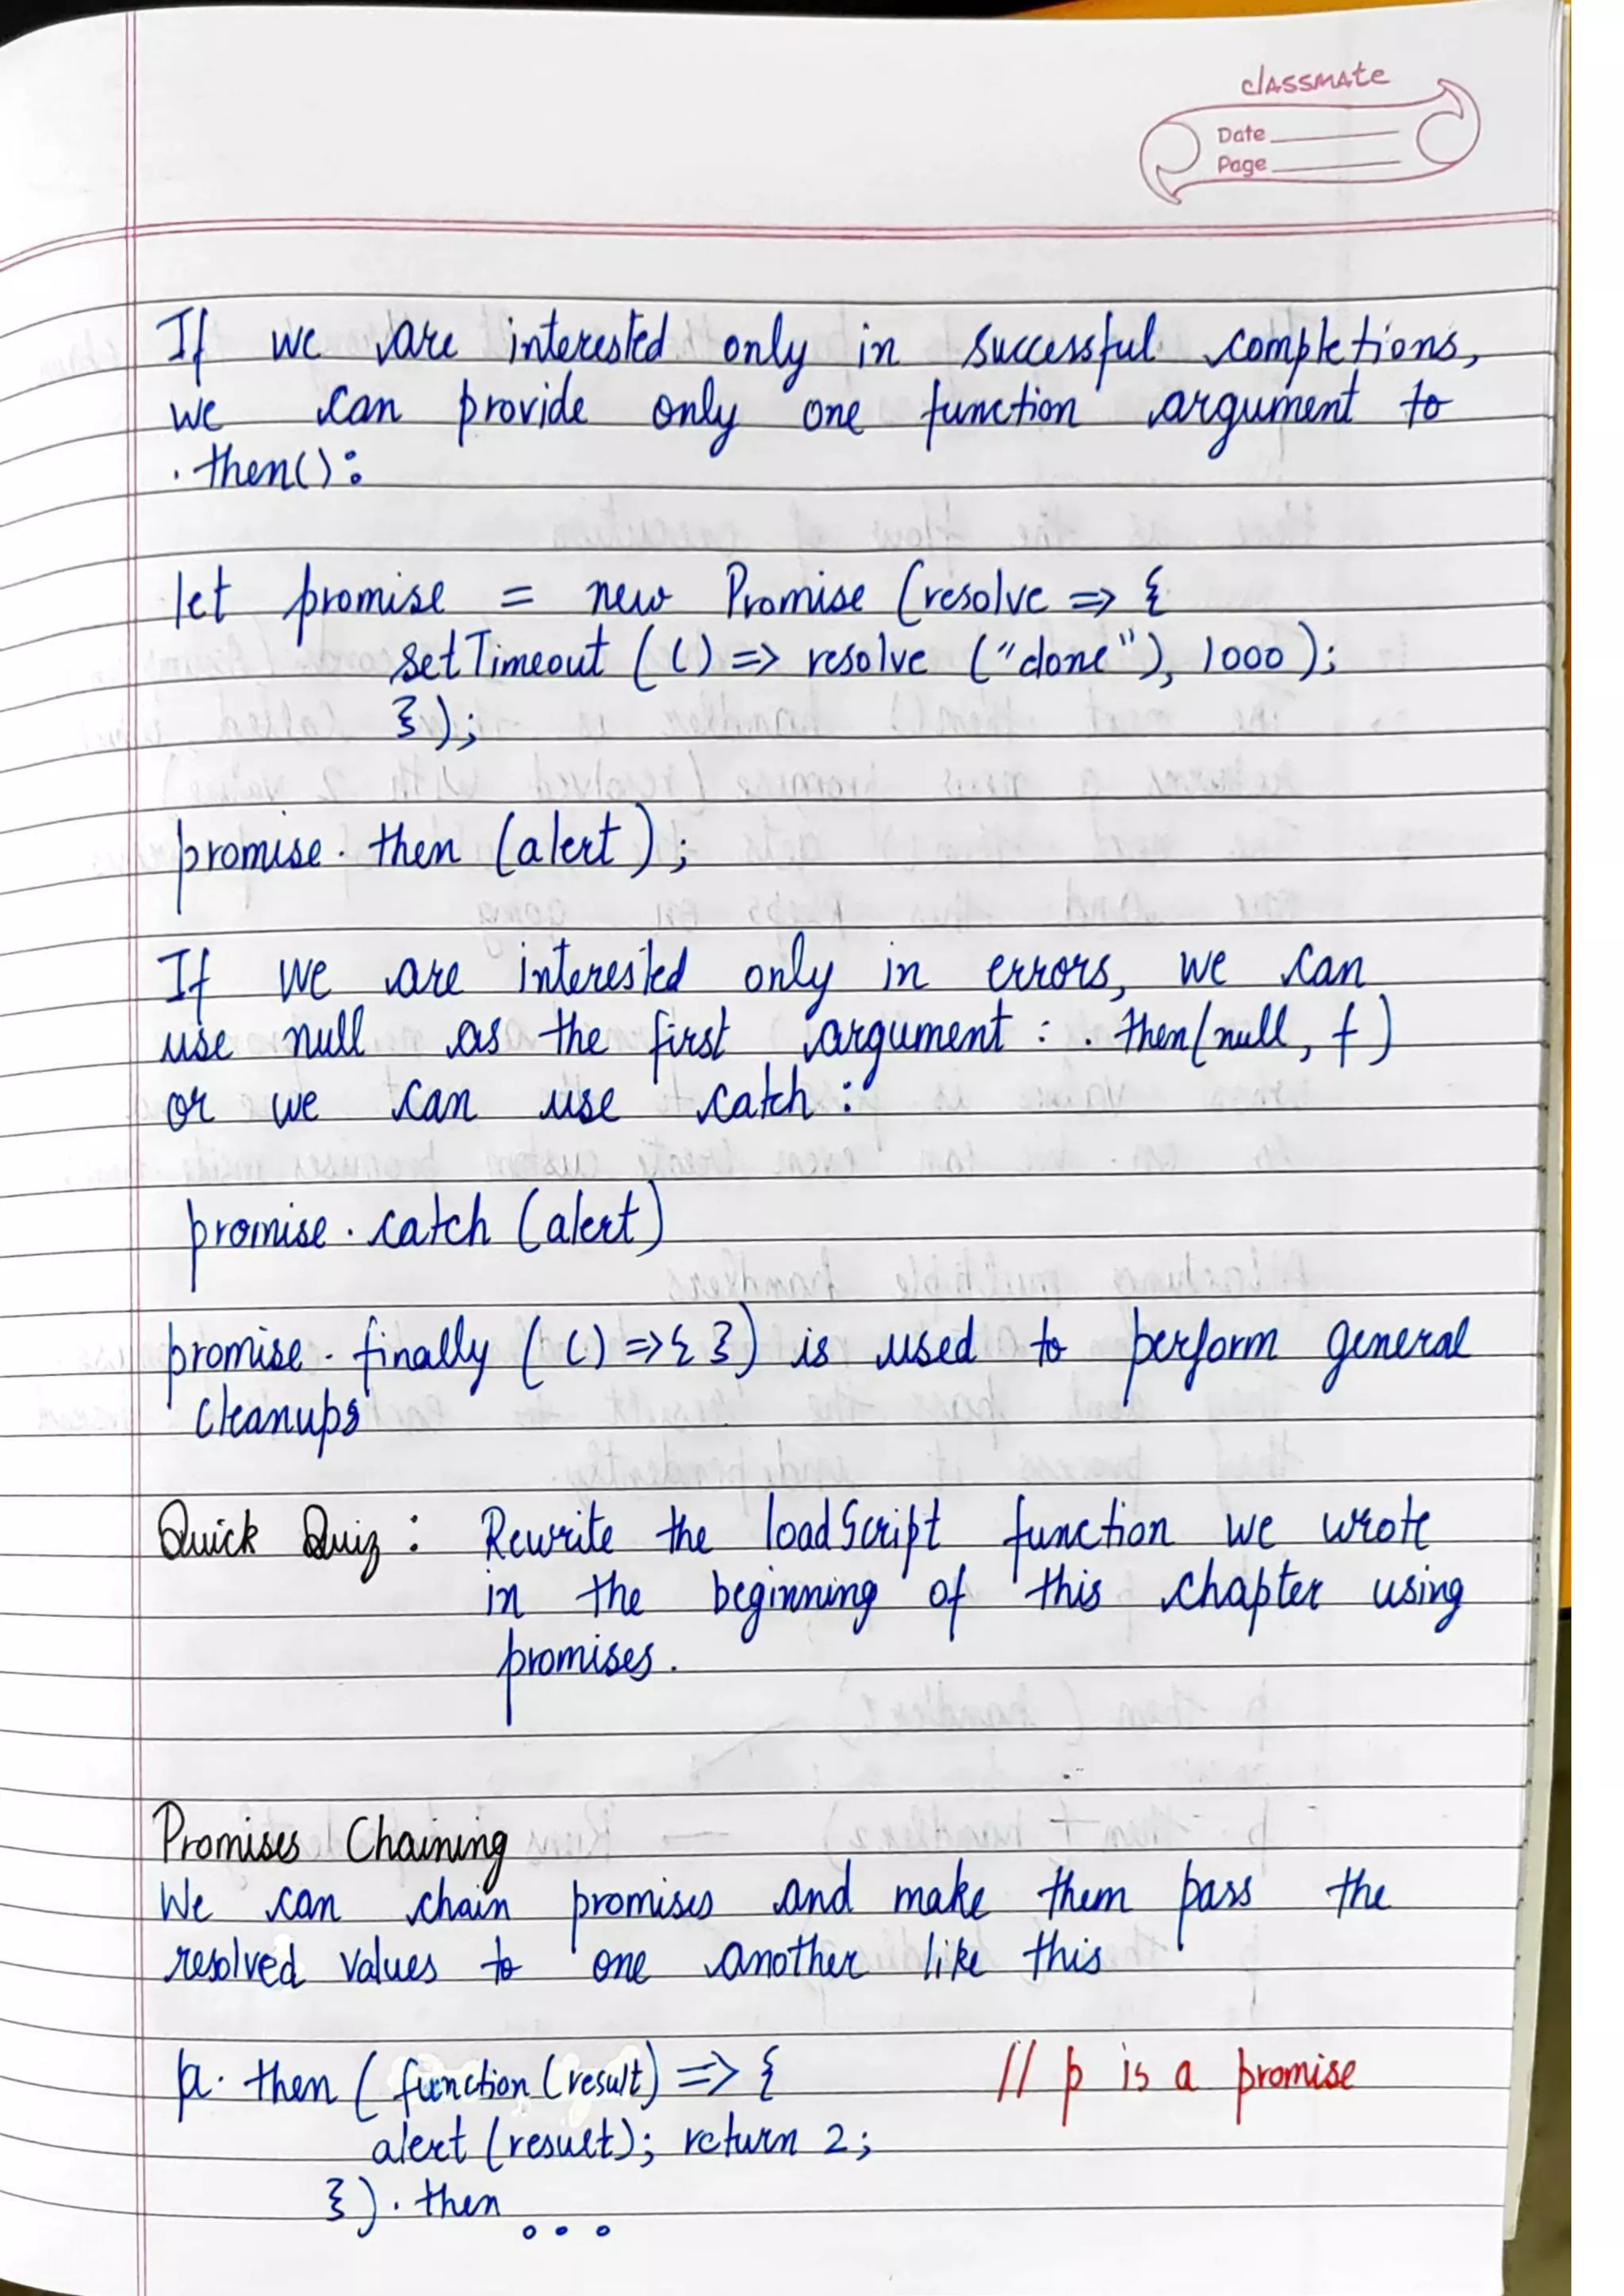 classmate
Date
Page
If we are interested only in successful completions,
we can provide only one function argument to
.then():
let promise = new Promise (resolve => {
setTimeout (() => resolve ("done"), 1000);
});
promise.then (alert);
If we are interested only in errors, we can
use null as the first argument : .then(null, f)
or we can use catch:
promise.catch (alert)
promise.finally (() => { }) is used to perform general
cleanups
Quick Quiz : Rewrite the loadScript function we wrote
in the beginning of this chapter using
promises.
Promises Chaining
We can chain promises and make them pass the
resolved values to one another like this
p.then ( function (result) => { // p is a promise
alert (result); return 2;
}).then ...